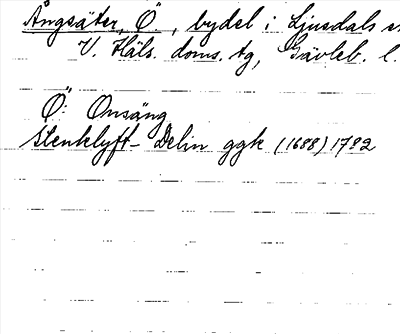 Ångsäter, Ö, bydel i Ljusdals s
V. Häls. doms. tg, Gävleb. l.
Ö: Onsäng
Stenklyft-Delin ggk (1688) 1782